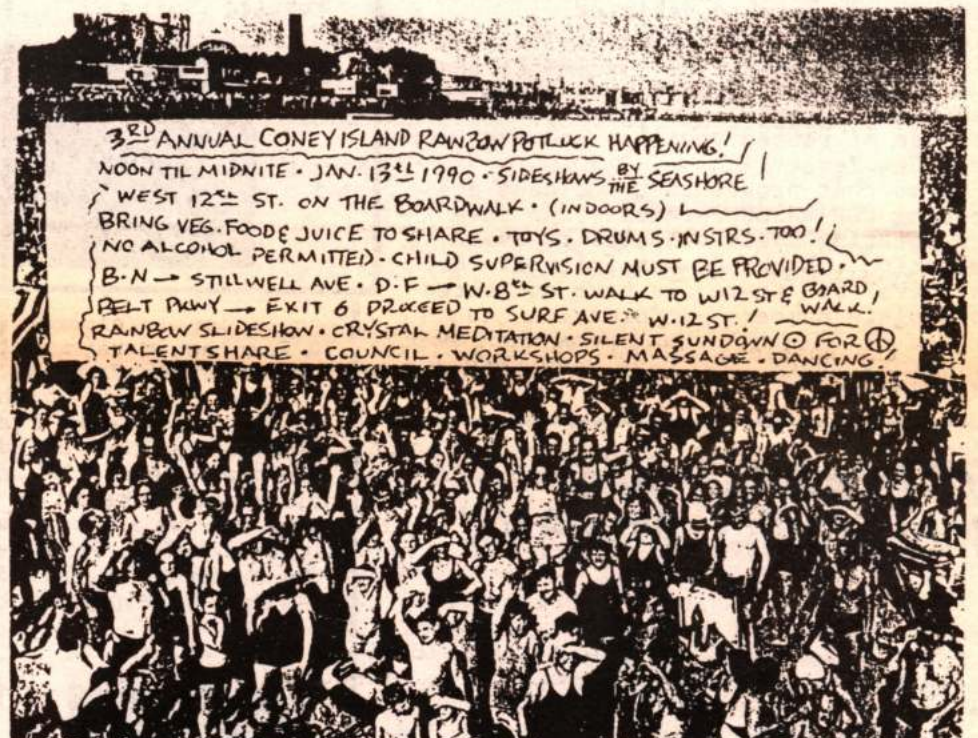 3RD ANNUAL CONEY ISLAND RAINBOW POTLUCK HAPPENING!
NOON TIL MIDNITE • JAN. 13th 1990 • SIDESHOWS BY THE SEASHORE
WEST 12th ST. ON THE BOARDWALK • (INDOORS)
BRING VEG. FOOD & JUICE TO SHARE • TOYS • DRUMS • INSTRS. TOO!
NO ALCOHOL PERMITTED • CHILD SUPERVISION MUST BE PROVIDED •
B • N → STILLWELL AVE. D • F → W. 8th ST. WALK TO W12 ST & BOARD WALK!
BELT PKWY → EXIT 6 PROCEED TO SURF AVE. W. 12 ST.!
RAINBOW SLIDESHOW • CRYSTAL MEDITATION • SILENT SUNDOWN ⊙ FOR ☮
TALENTSHARE • COUNCIL • WORKSHOPS • MASSAGE • DANCING!